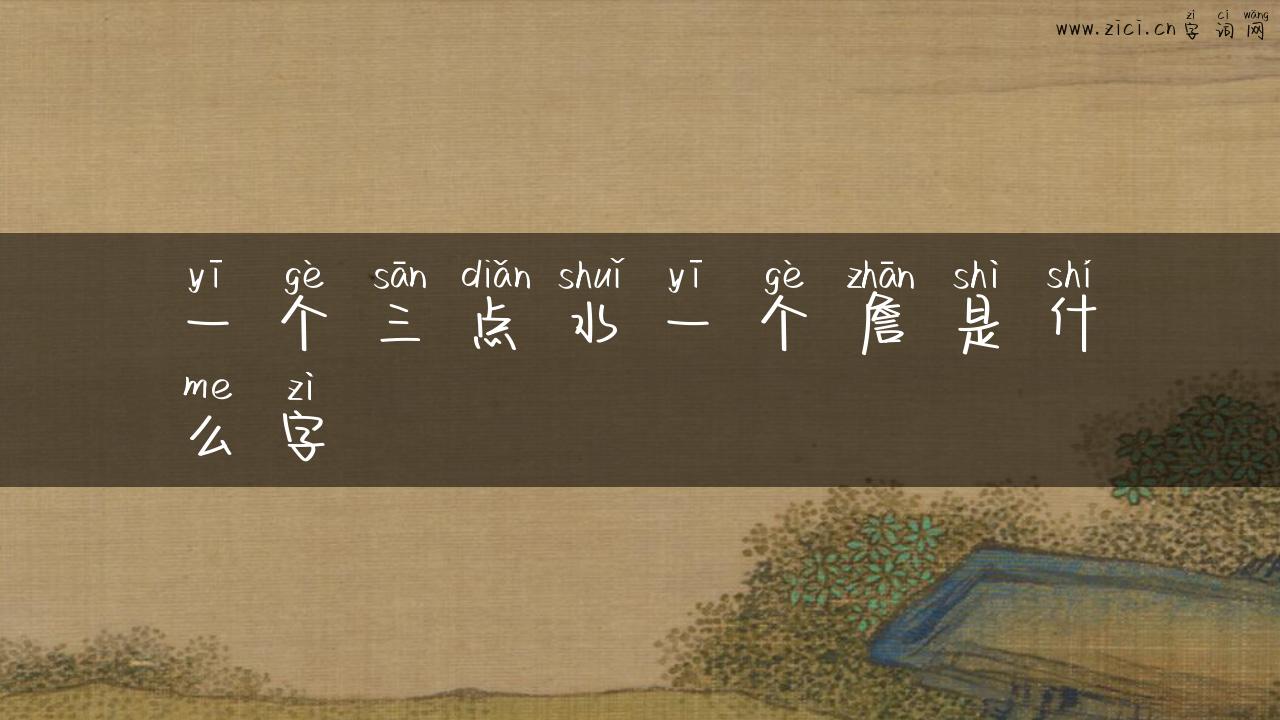 zì cí wǎng
www.zici.cn 字 词 网
yī gè sān diǎn shuǐ yī gè zhān shì shí
一 个 三 点 水 一 个 詹 是 什
me zì
么 字